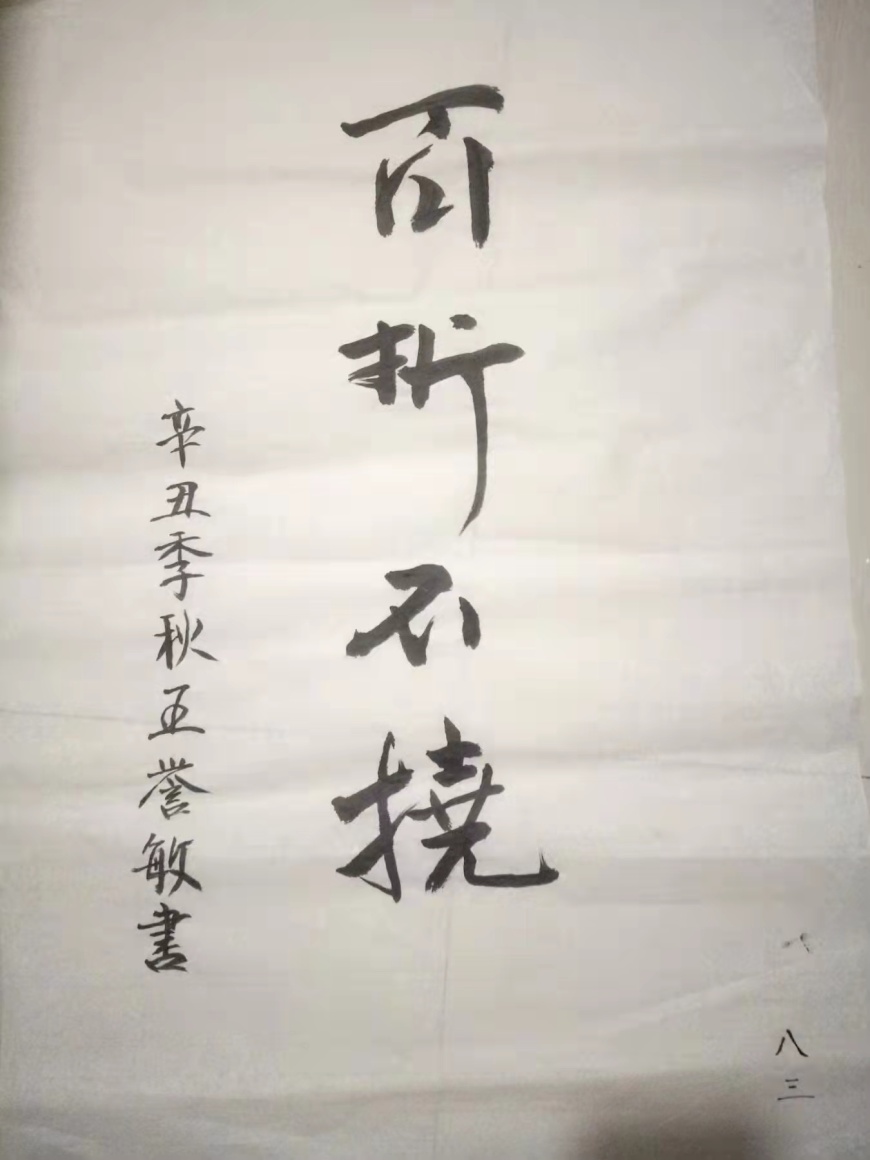 百折不撓
辛丑季秋王誉敏書
八三